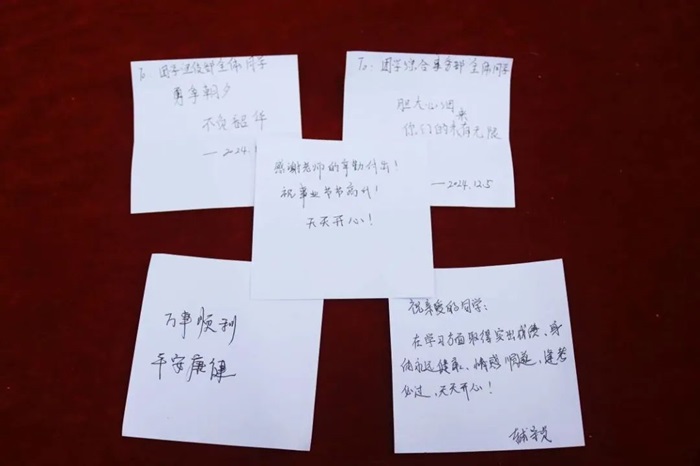 To 团学建设部全体同学
勇争朝夕
不负韶华
——2024.1
To. 团学综合事务部全体同学
胆大心细
你们的未来无限
——2024.12.5
感谢老师的辛勤付出!
祝事业节节高升!
天天开心!
万事顺利
平安康健
祝亲爱的同学:
在学习方面取得突出成绩,身
体永远健康,情感顺遂,逢考
必过,天天开心!